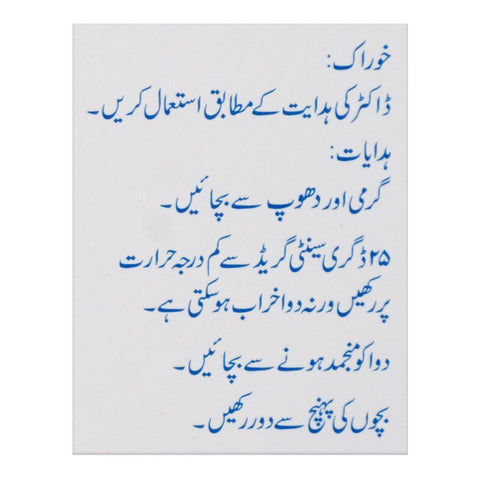 خوراک:
ڈاکٹر کی ہدایت کے مطابق استعمال کریں۔
ہدایات:
گرمی اور دھوپ سے بچائیں۔
۲۵ ڈگری سینٹی گریڈ سے کم درجہ حرارت
پر رکھیں ورنہ دوا خراب ہوسکتی ہے۔
دوا کو منجمد ہونے سے بچائیں۔
بچوں کی پہنچ سے دور رکھیں۔